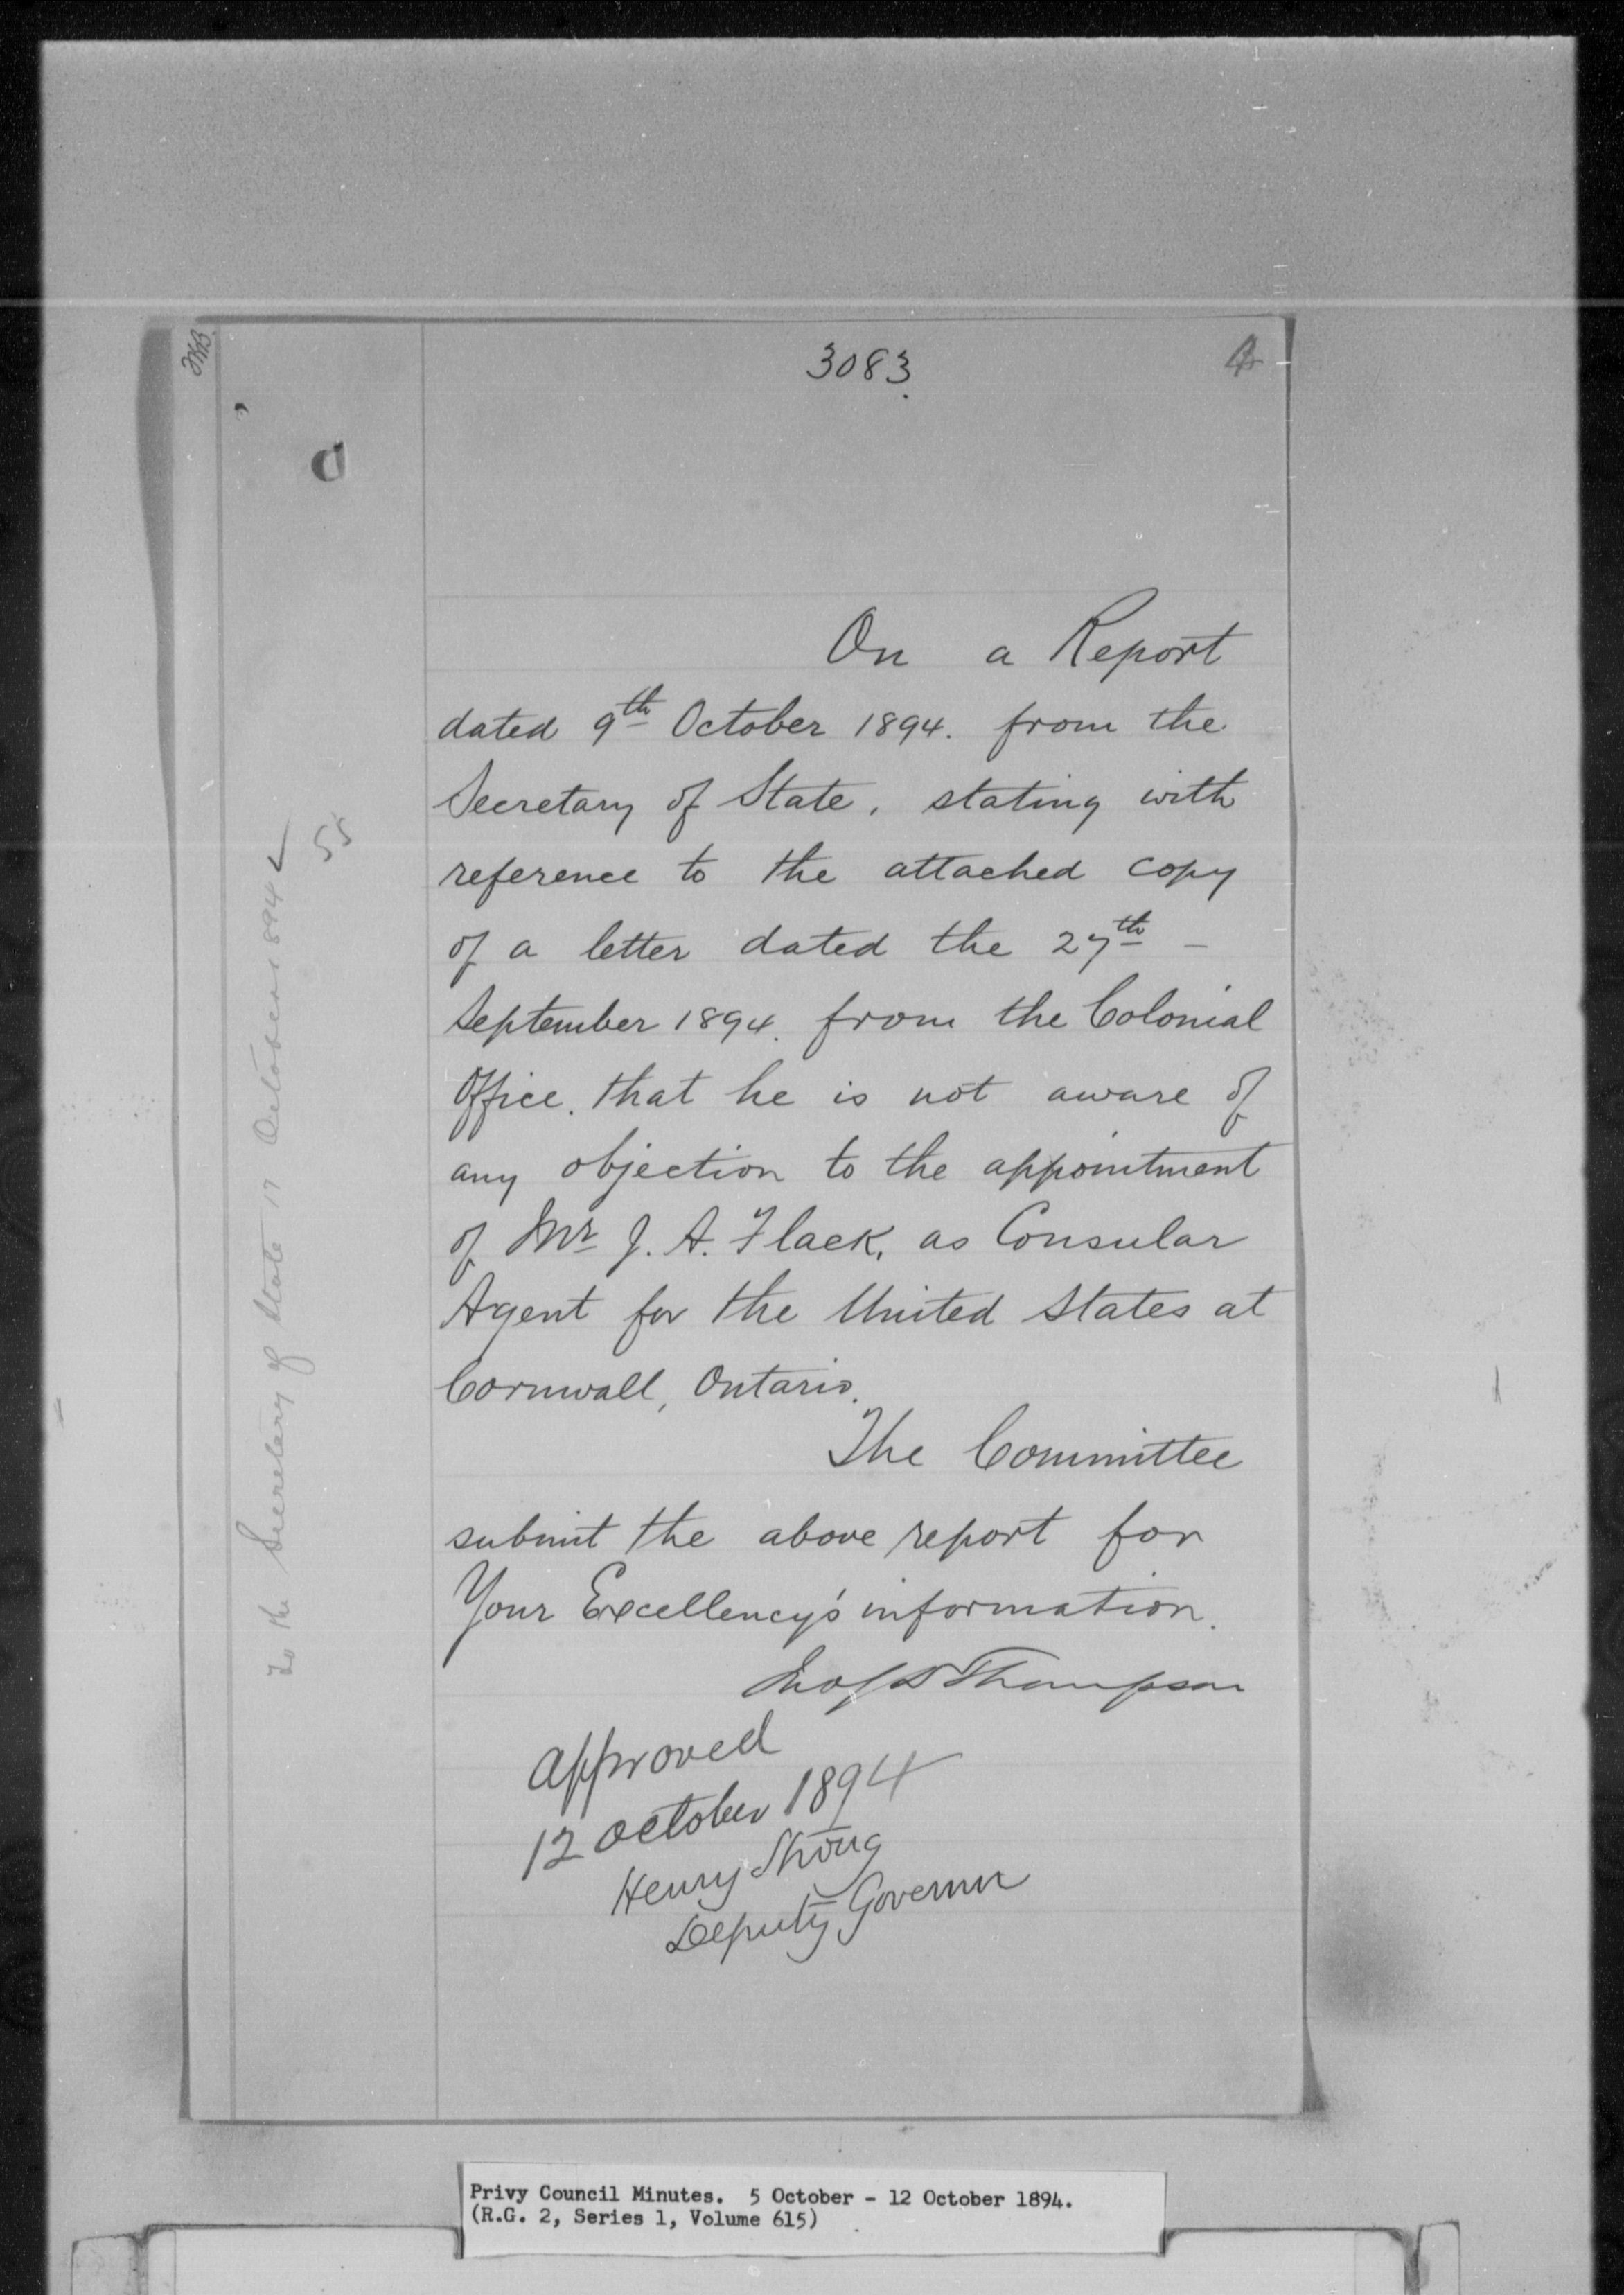 3083.
On a Report
dated 9th October 1894. from the
Secretary of State, stating with
reference to the attached copy
of a letter dated the 27th –
September 1894. from the Colonial
Office. that he is not aware of
any objection to the appointment
of Mr J. A. Flack, as Consular
Agent for the United States at
Cornwall, Ontario.
The Committee
submit the above report for
Your Excellency's information.
Jno S D Thompson
Approved
12 October 1894
Henry Strong
Deputy Governor
To the Secretary of State 17 October 1894
55
Privy Council Minutes. 5 October - 12 October 1894.
(R.G. 2, Series 1, Volume 615)